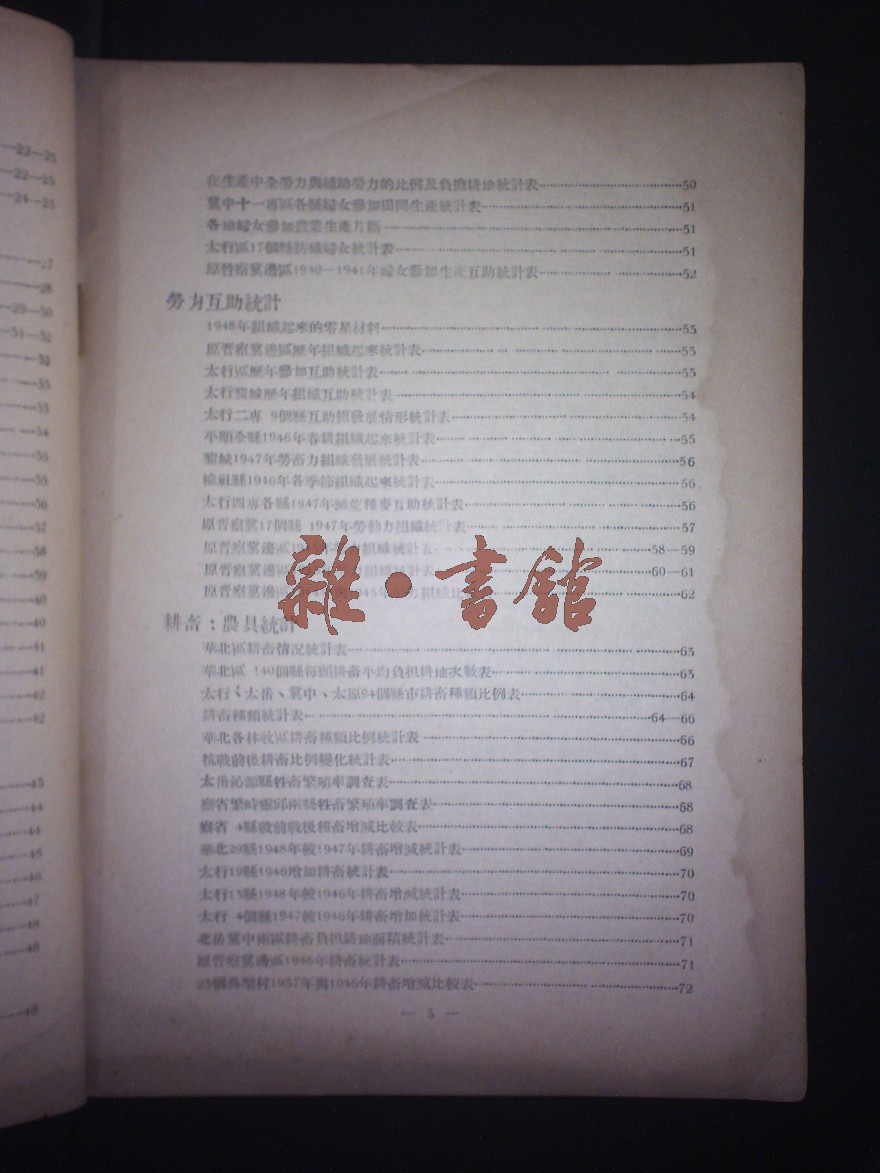 22—25
22—25
24—25
27
28
29—30
在生產中全勞力與輔助勞力的比例及負擔耕地統計表 50
冀中十一專區各縣婦女參加田間生產統計表 51
各地婦女參加農業生產片斷 51
太行區17個縣紡織婦女統計表 51
原晉察冀邊區1940—1941年婦女參加生產互助統計表 52
勞力互助統計
1948年組織起來的零星材料 53
原晉察冀邊區歷年組織起來統計表 53
太行區歷年參加互助統計表 53
太行黎城歷年組織互助統計表 54
太行二專 9個縣互助組發展情形統計表 54
平順全縣1946年春耕組織起來統計表 55
黎城1947年勞畜力組織發展統計表 56
榆社縣1946年各季節組織起來統計表 56
太行四專各縣1947年 種麥互助統計表 56
原晉察冀17個縣 1947年勞動力組織統計表 57
原晉察冀邊區 組織統計表 58—59
原晉察冀邊區 組織統計表 60—61
原晉察冀邊區 組織比 62
雜·書館
耕畜：農具統計
華北區耕畜情况統計表 63
華北區 140個縣每頭耕畜平均負担耕地畝數表 63
太行、太岳、冀中、太原94個縣市耕畜種類比例表 64
耕畜種類統計表 64—66
華北各林牧區耕畜種類比例統計表 66
抗戰前後耕畜比例變化統計表 67
太岳沁源縣牲畜繁殖率調查表 68
察省繁峙靈邱兩縣牲畜繁殖率調查表 68
察省 4縣戰前戰後種畜增減比較表 68
華北29縣1948年較1947年耕畜增減統計表 69
太行19縣1946增加耕畜統計表 70
太行15縣1948年較1946年耕畜增減統計表 70
太行 4個縣1947較1946年耕畜增加統計表 70
北岳冀中兩區耕畜負担耕地面積統計表 71
原晉察冀邊區1946年耕畜統計表 71
25個典型村1937年與1946年耕畜增減比較表 72
— 5 —